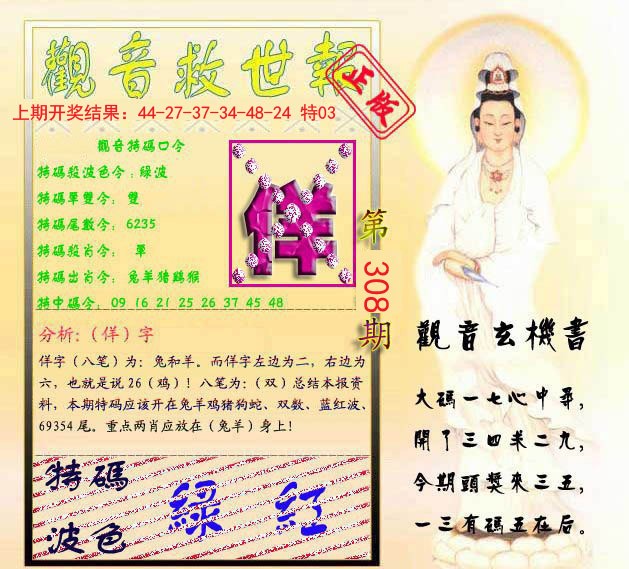 觀音救世報
正版
上期开奖结果：44-27-37-34-48-24 特03
觀音特碼口令
特碼殺波色令：綠波
特碼單雙令： 雙
特碼尾數令： 6235
特碼殺肖令： 單
特碼出肖令： 兔羊猪鷄猴
特中碼令： 09 16 21 25 26 37 45 48
佯
第308期
分析:（佯）字
佯字（八笔）为：兔和羊。而佯字左边为二，右边为
六，也就是说26（鸡）！八笔为:（双）总结本报资
料，本期特码应该开在兔羊鸡猪狗蛇、双数、蓝红波、
69354尾。重点两肖应放在（兔羊）身上!
特碼
波色
綠 紅
觀音玄機書
大碼一七心中尋，
開了三四半二九，
今期頭獎來三五，
一三有碼五在后。